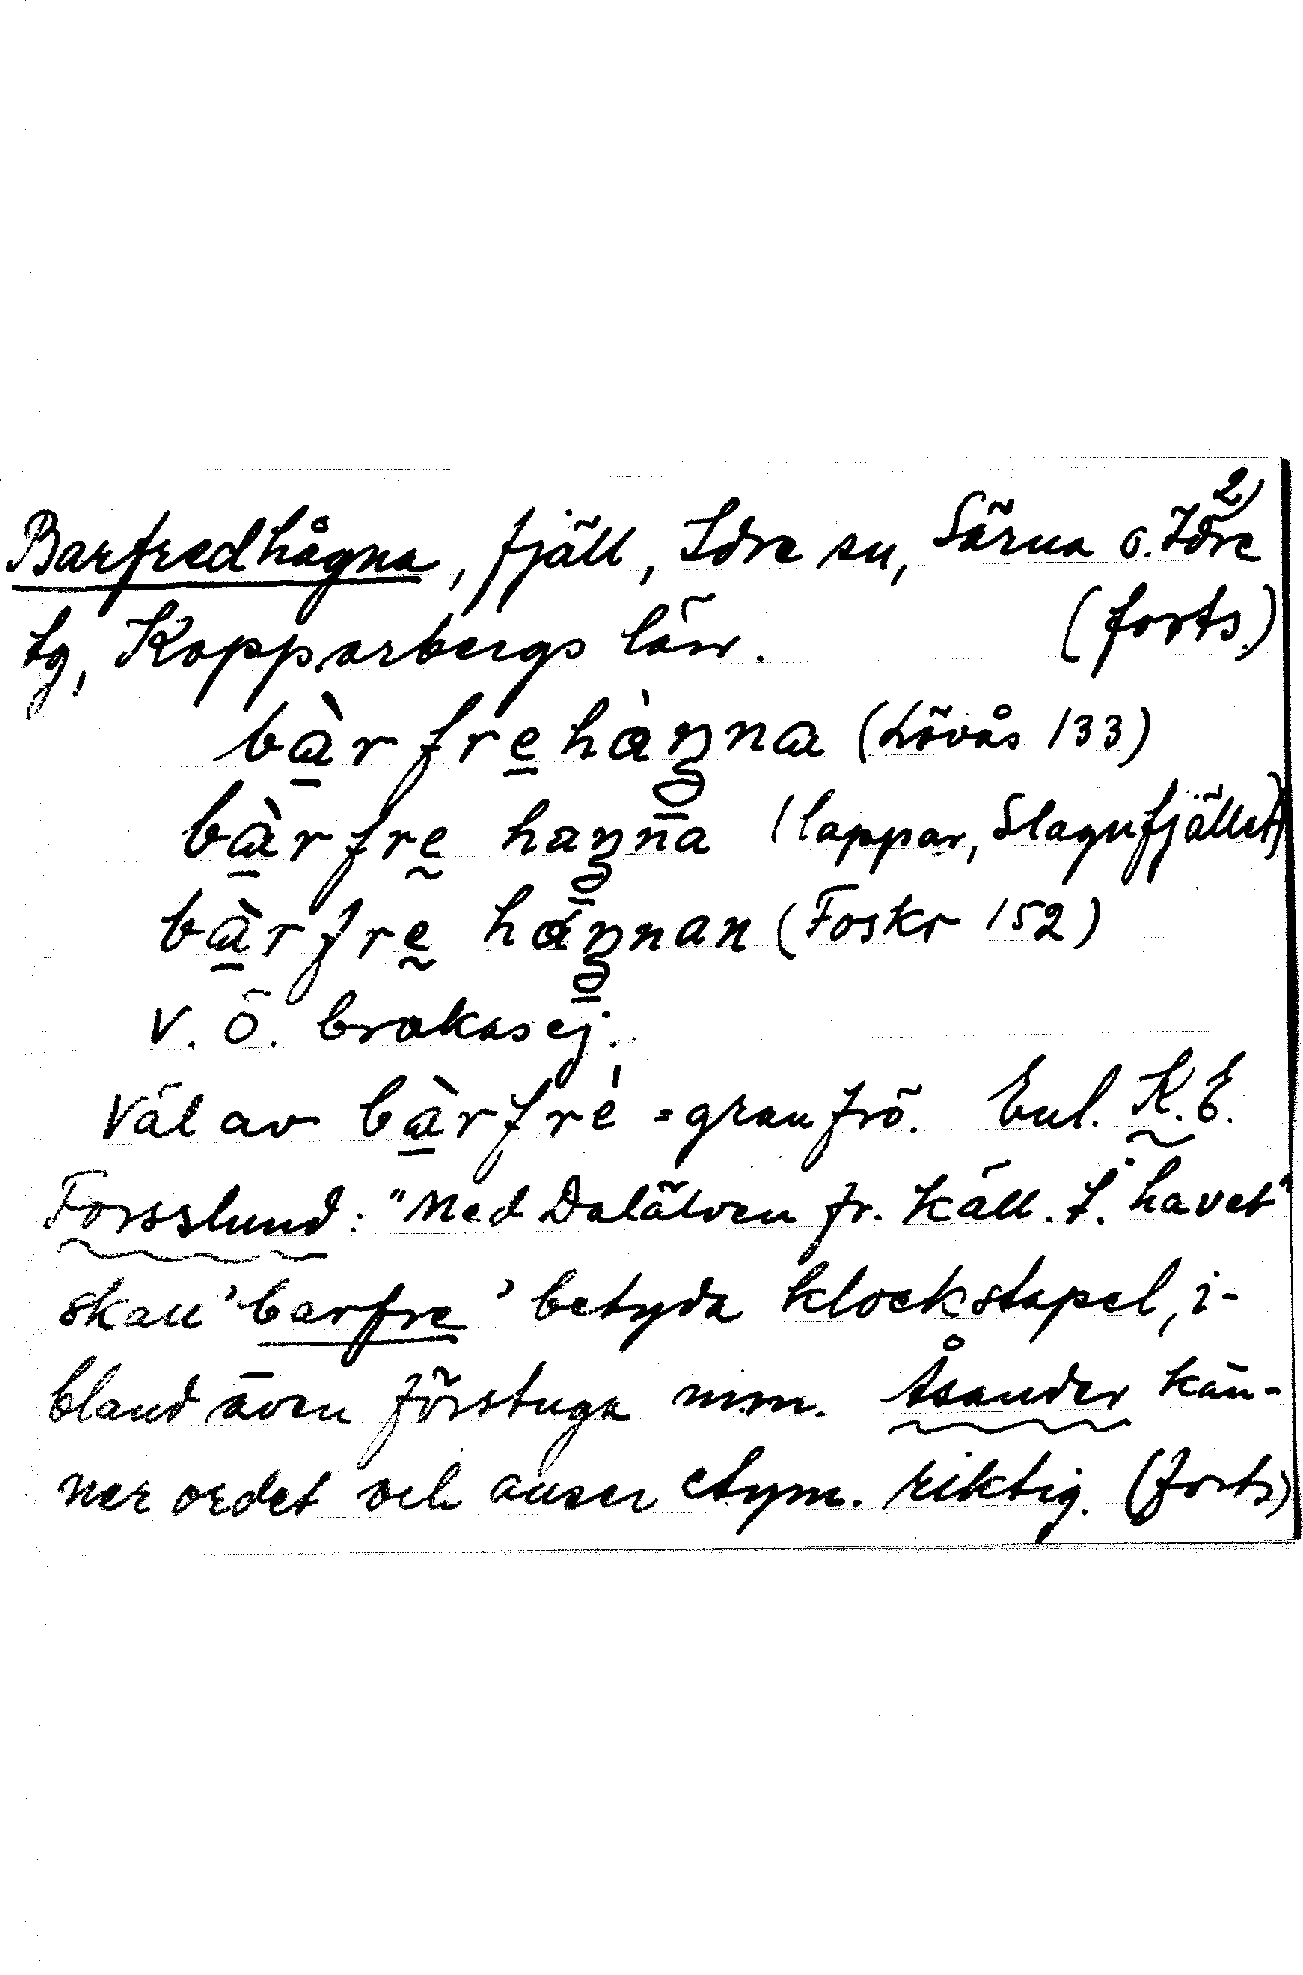 2)
Barfredhågna, fjäll, Idre sn, Särna o. Idre
tg, Kopparbergs län. (forts.)
bàrfrehàŋna (Lövås 133)
bàrfre haŋna (lappar, Slagufjället)
bàrfre háŋnan (Foskr 152)
V. Ö. brakasej.
Väl av bàrfrè = granfrö. Enl. K.E.
Forsslund: "Med Dalälven fr. käll. t. havet"
skall 'barfre' betyda klockstapel, i-
bland även förstuga mm. Åsander kän-
ner ordet och anser etym. riktig. (forts)